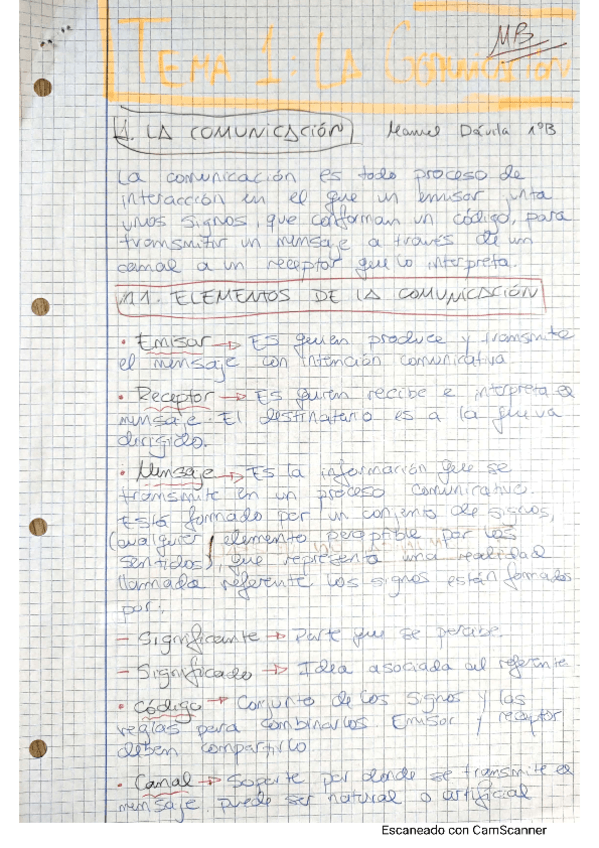 MB
TEMA 1: LA COMUNICACIÓN
1. LA COMUNICACIÓN Manuel Dávila 1ºB
La comunicación es todo proceso de
interacción en el que un emisor junta
unos signos, que conforman un código, para
transmitir un mensaje a través de un
canal a un receptor que lo interpreta.
1.1. ELEMENTOS DE LA COMUNICACIÓN
• Emisor → Es quien produce y transmite
el mensaje con intención comunicativa
• Receptor → Es quien recibe e interpreta el
mensaje. El destinatario es a la que va
dirigido.
• Mensaje → Es la información que se
transmite en un proceso comunicativo.
Está formado por un conjunto de signos,
(cualquier elemento perceptible por los
sentidos), que representa una realidad
llamada referente. Los signos están formados
por:
- Significante → Parte que se percibe.
- Significado → Idea asociada al referente
• Código → Conjunto de los signos y las
reglas para combinarlos. Emisor y receptor
deben compartirlo
• Canal → Soporte por donde se transmite el
mensaje, puede ser natural o artificial
Escaneado con CamScanner